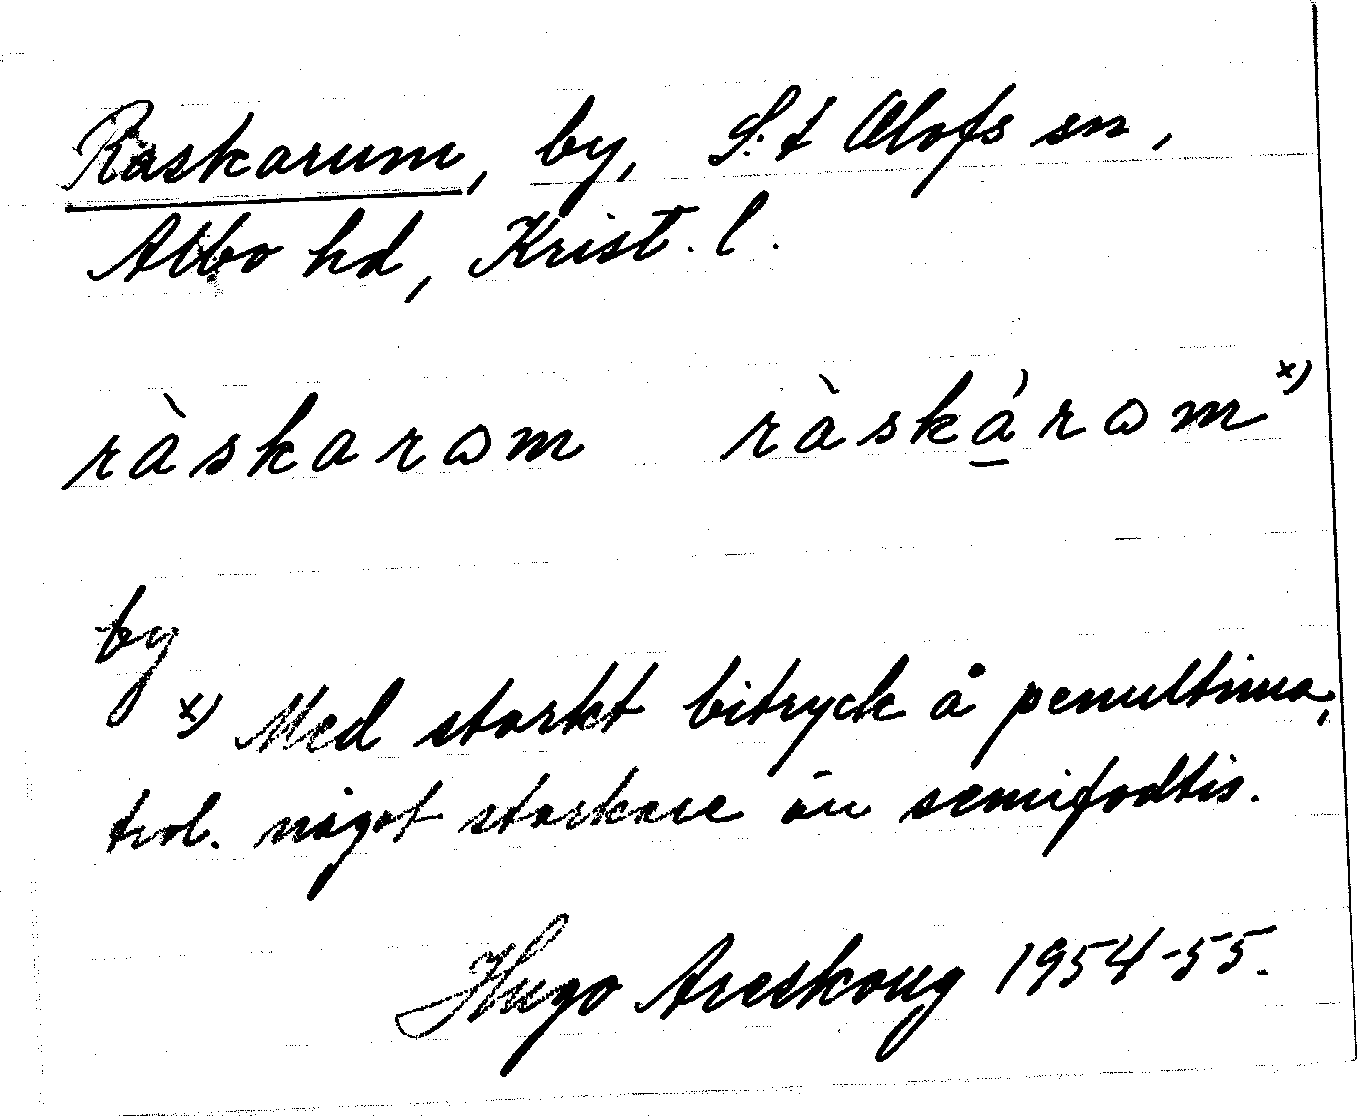 Raskarum, by, S:t Olofs sn,
Albo hd, Krist. l.
ràskarɷm ràská̱rɷm x)
by
x) Med starkt bitryck å penultima,
trol. något starkare än semifortis.
Hugo Areskoug 1954-55.